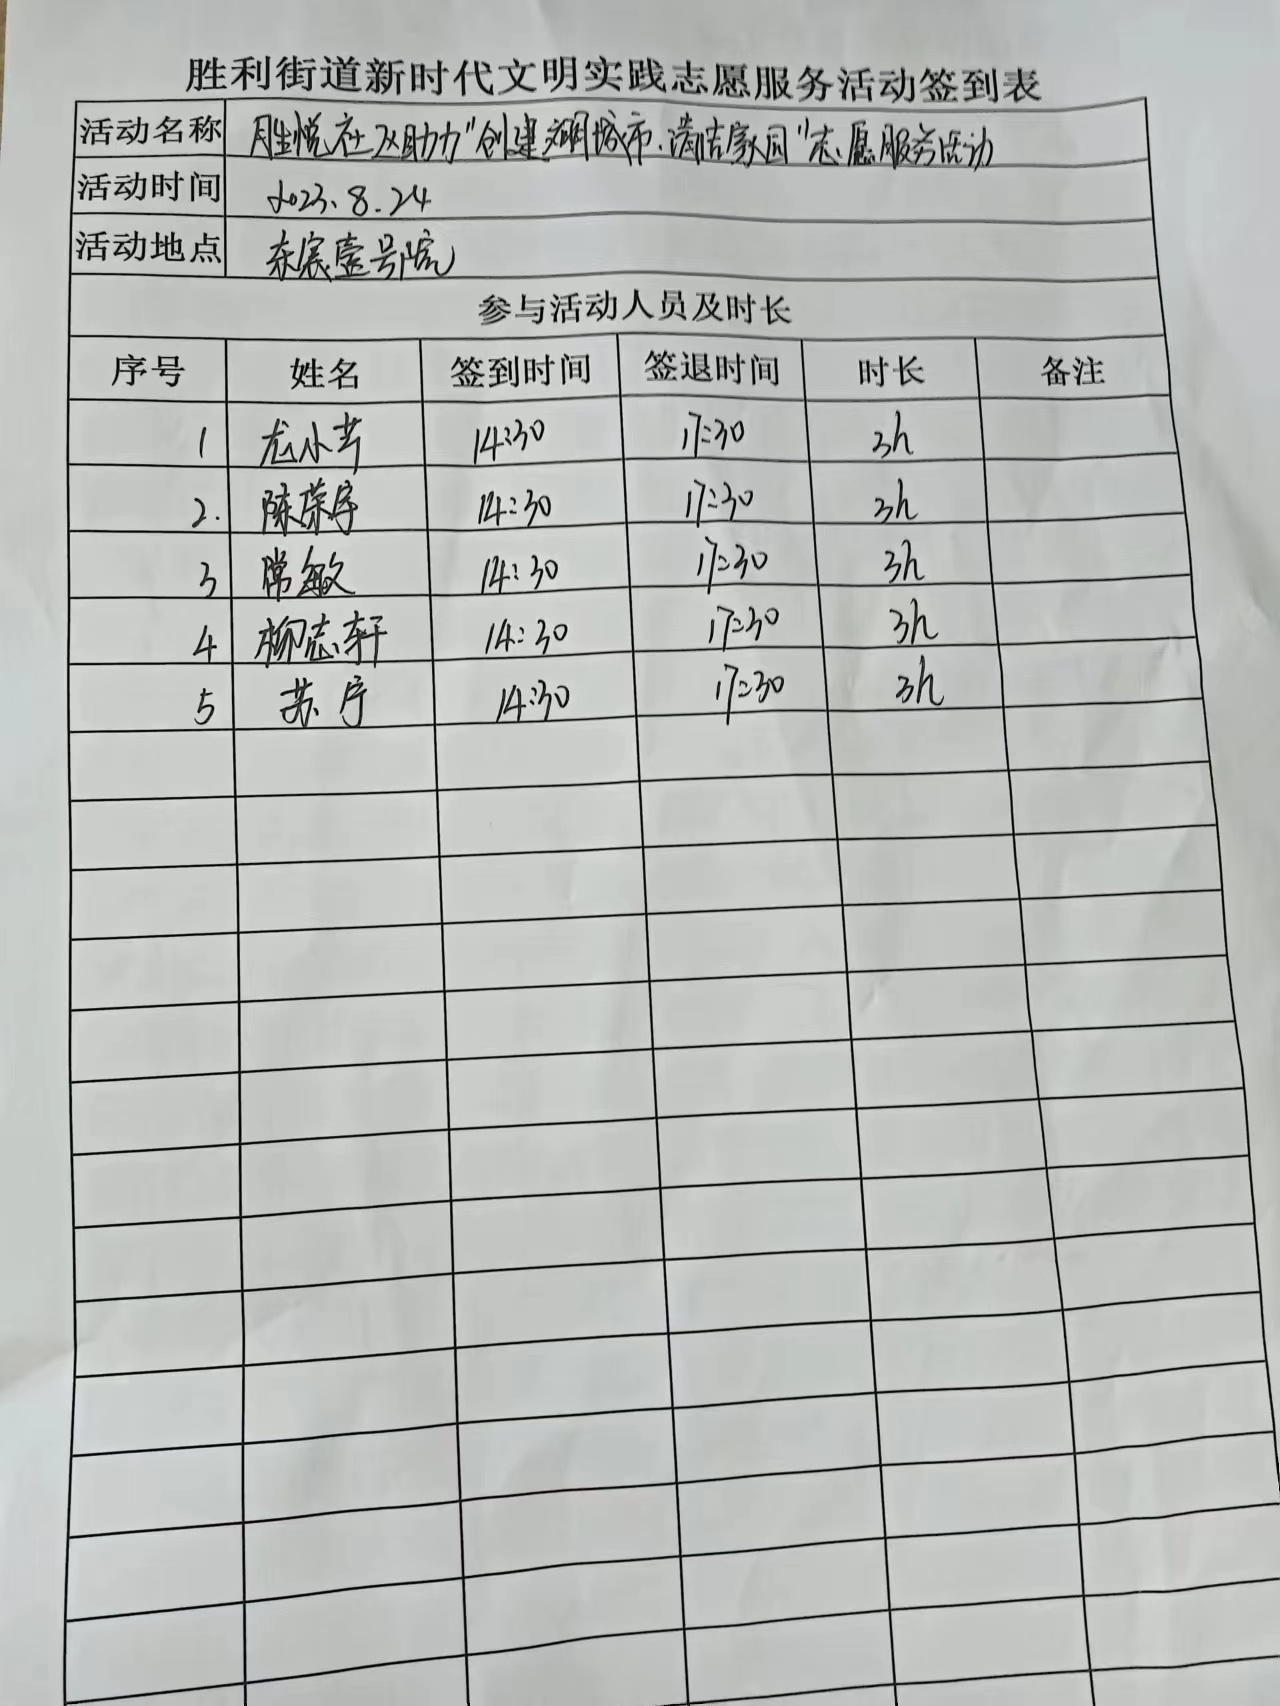 胜利街道新时代文明实践志愿服务活动签到表
活动名称 胜悦社区助力"创建文明城市、清洁家园"志愿服务活动
活动时间 2023.8.24
活动地点 东宸壹号院
参与活动人员及时长
序号 姓名 签到时间 签退时间 时长 备注
1 尤小芹 14:30 17:30 3h
2. 陈荣序 14:30 17:30 3h
3 常敏 14:30 17:30 3h
4 柳志轩 14:30 17:30 3h
5 苏序 14:30 17:30 3h